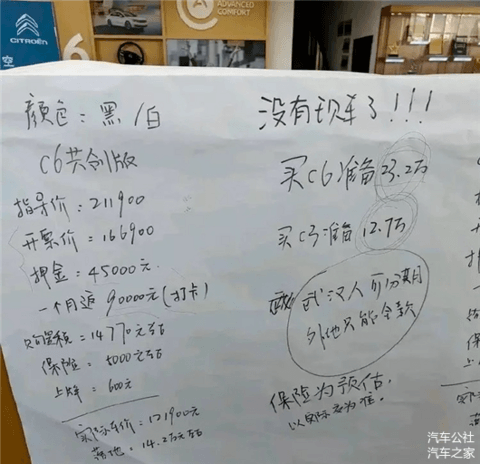 CITROËN
ADVANCED
COMFORT
6
空
颜色：黑/白
C6共创版
指导价：211900
开票价：166900
押金：45000元
一个月返90000元(打卡)
购置税=14770元左右
保险：5000元左右
上牌：600元
实际车价：121900元
落地：14.2万元左右
没有现车了!!!
买C6准备23.2万
买C3准备12.7万
武汉人可分期
外地只能全款
保险为预估，
以实际为准。
汽车公社
汽车之家